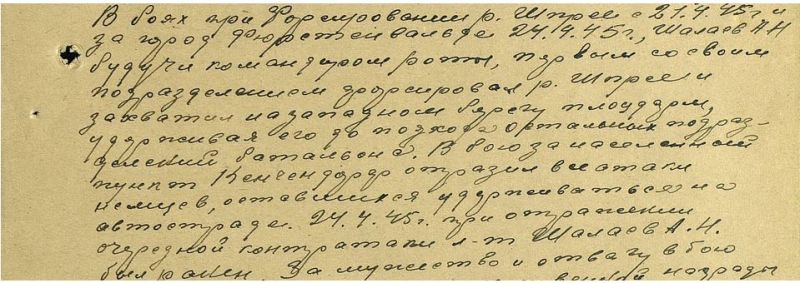 В боях при форсировании р. Шпрее с 21.4.45г и
за город Фюрстенвальде 24.4.45г., Шалаев А.Н
будучи командиром роты, первым со своим
подразделением форсировал р. Шпрее и
захватил на западном берегу плоцдарм,
удерживая его до подхода остальных подраз-
делений батальона. В бою за населенный
пункт Кенчендорф отразил все атаки
немцев, оставшихся удерживаться на
автостраде. 24.4.45г. при отражении
очередной контратаки л-т Шалаев А.Н.
был ранен. За мужество и отвагу в бою
награды